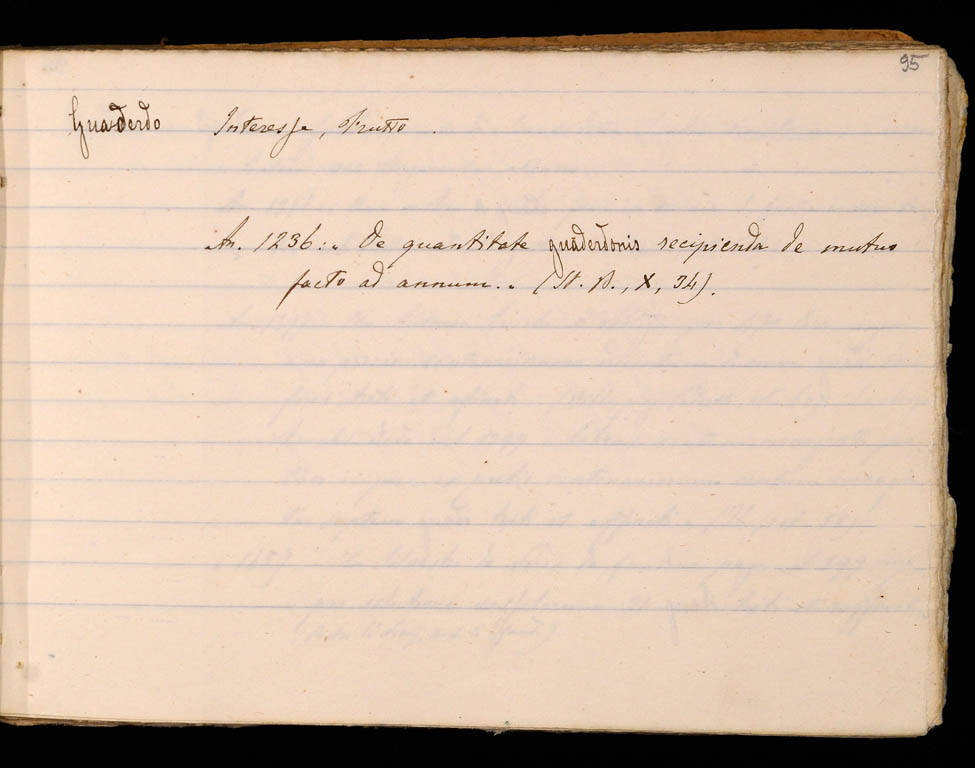 95
Guaderdo Interesse, Frutto.
An. 1236: „ De quantitate guaderdonis recipienda de mutuo
facto ad annum. „ (St. B., X, 34).